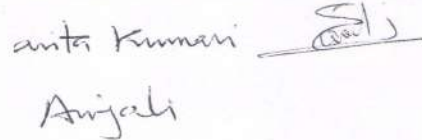 anita Kumari
Anjali